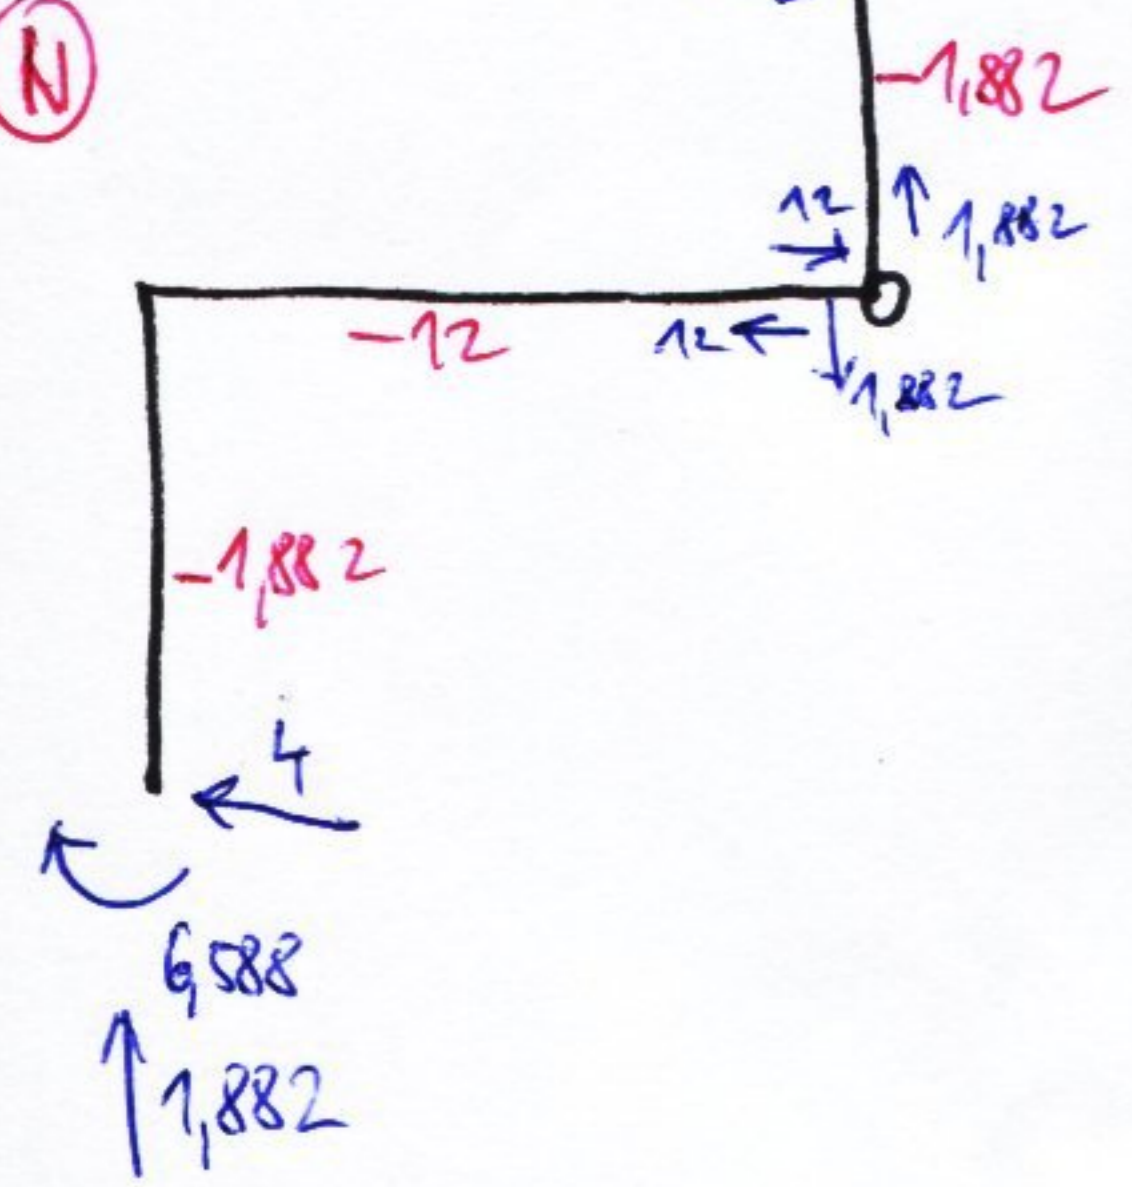 N
-1,882
12
1,882
-12
12
1,882
-1,882
4
6,588
1,882